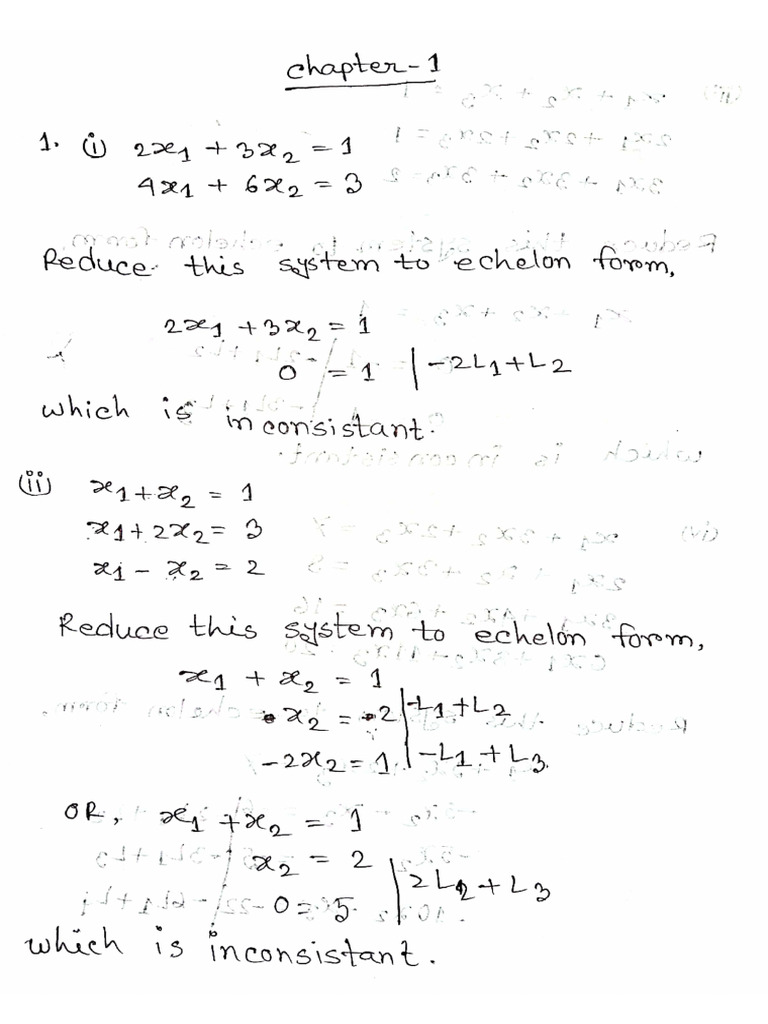 chapter-1
1. (i) 2x₁ + 3x₂ = 1
4x₁ + 6x₂ = 3
Reduce this system to echelon form,
2x₁ + 3x₂ = 1
0 = 1 | -2L₁+L₂
which is inconsistant.
(ii) x₁+x₂ = 1
x₁+2x₂ = 3
x₁ - x₂ = 2
Reduce this system to echelon form,
x₁ + x₂ = 1
x₂ = 2 | -L₁+L₂
-2x₂ = 1 | -L₁+L₃
OR, x₁ +x₂ = 1
x₂ = 2
0 = 5 | 2L₂+L₃
which is inconsistant.